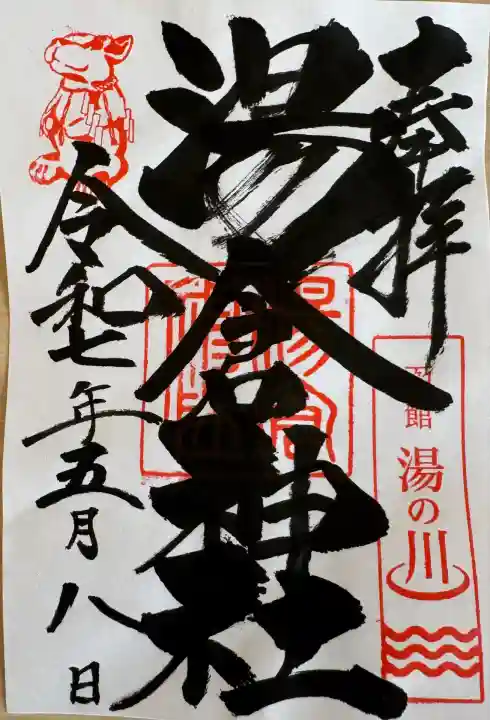 奉拝
湯倉神社
令和七年五月八日
函館 湯の川